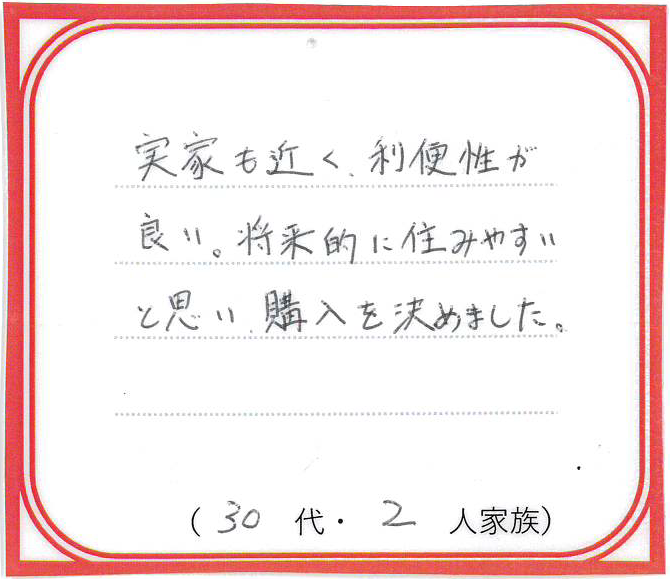 実家も近く、利便性が
良い。将来的に住みやすい
と思い、購入を決めました。
(30代・2人家族)